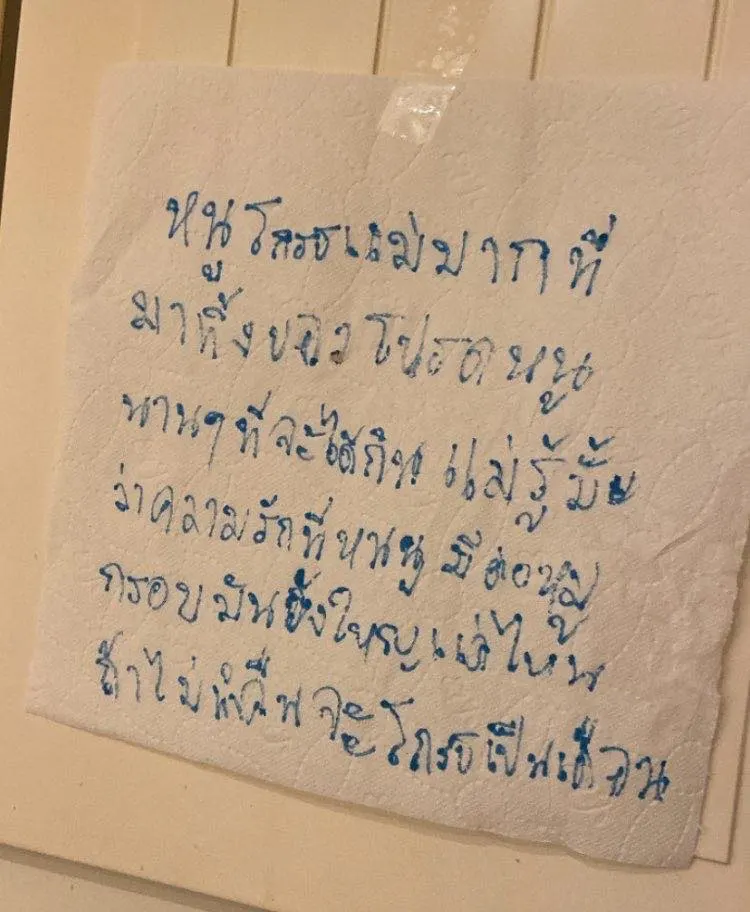 หนูโกรธแม่มากที่
มาทิ้งของโปรดหนู
นานๆที่จะได้กิน แม่รู้มั้ย
ว่าความรักที่หนูมีต่อหมู
กรอบมันยิ่งใหญ่แค่ไหน
ถ้าไม่นำคืนจะโกรธเป็นเดือน